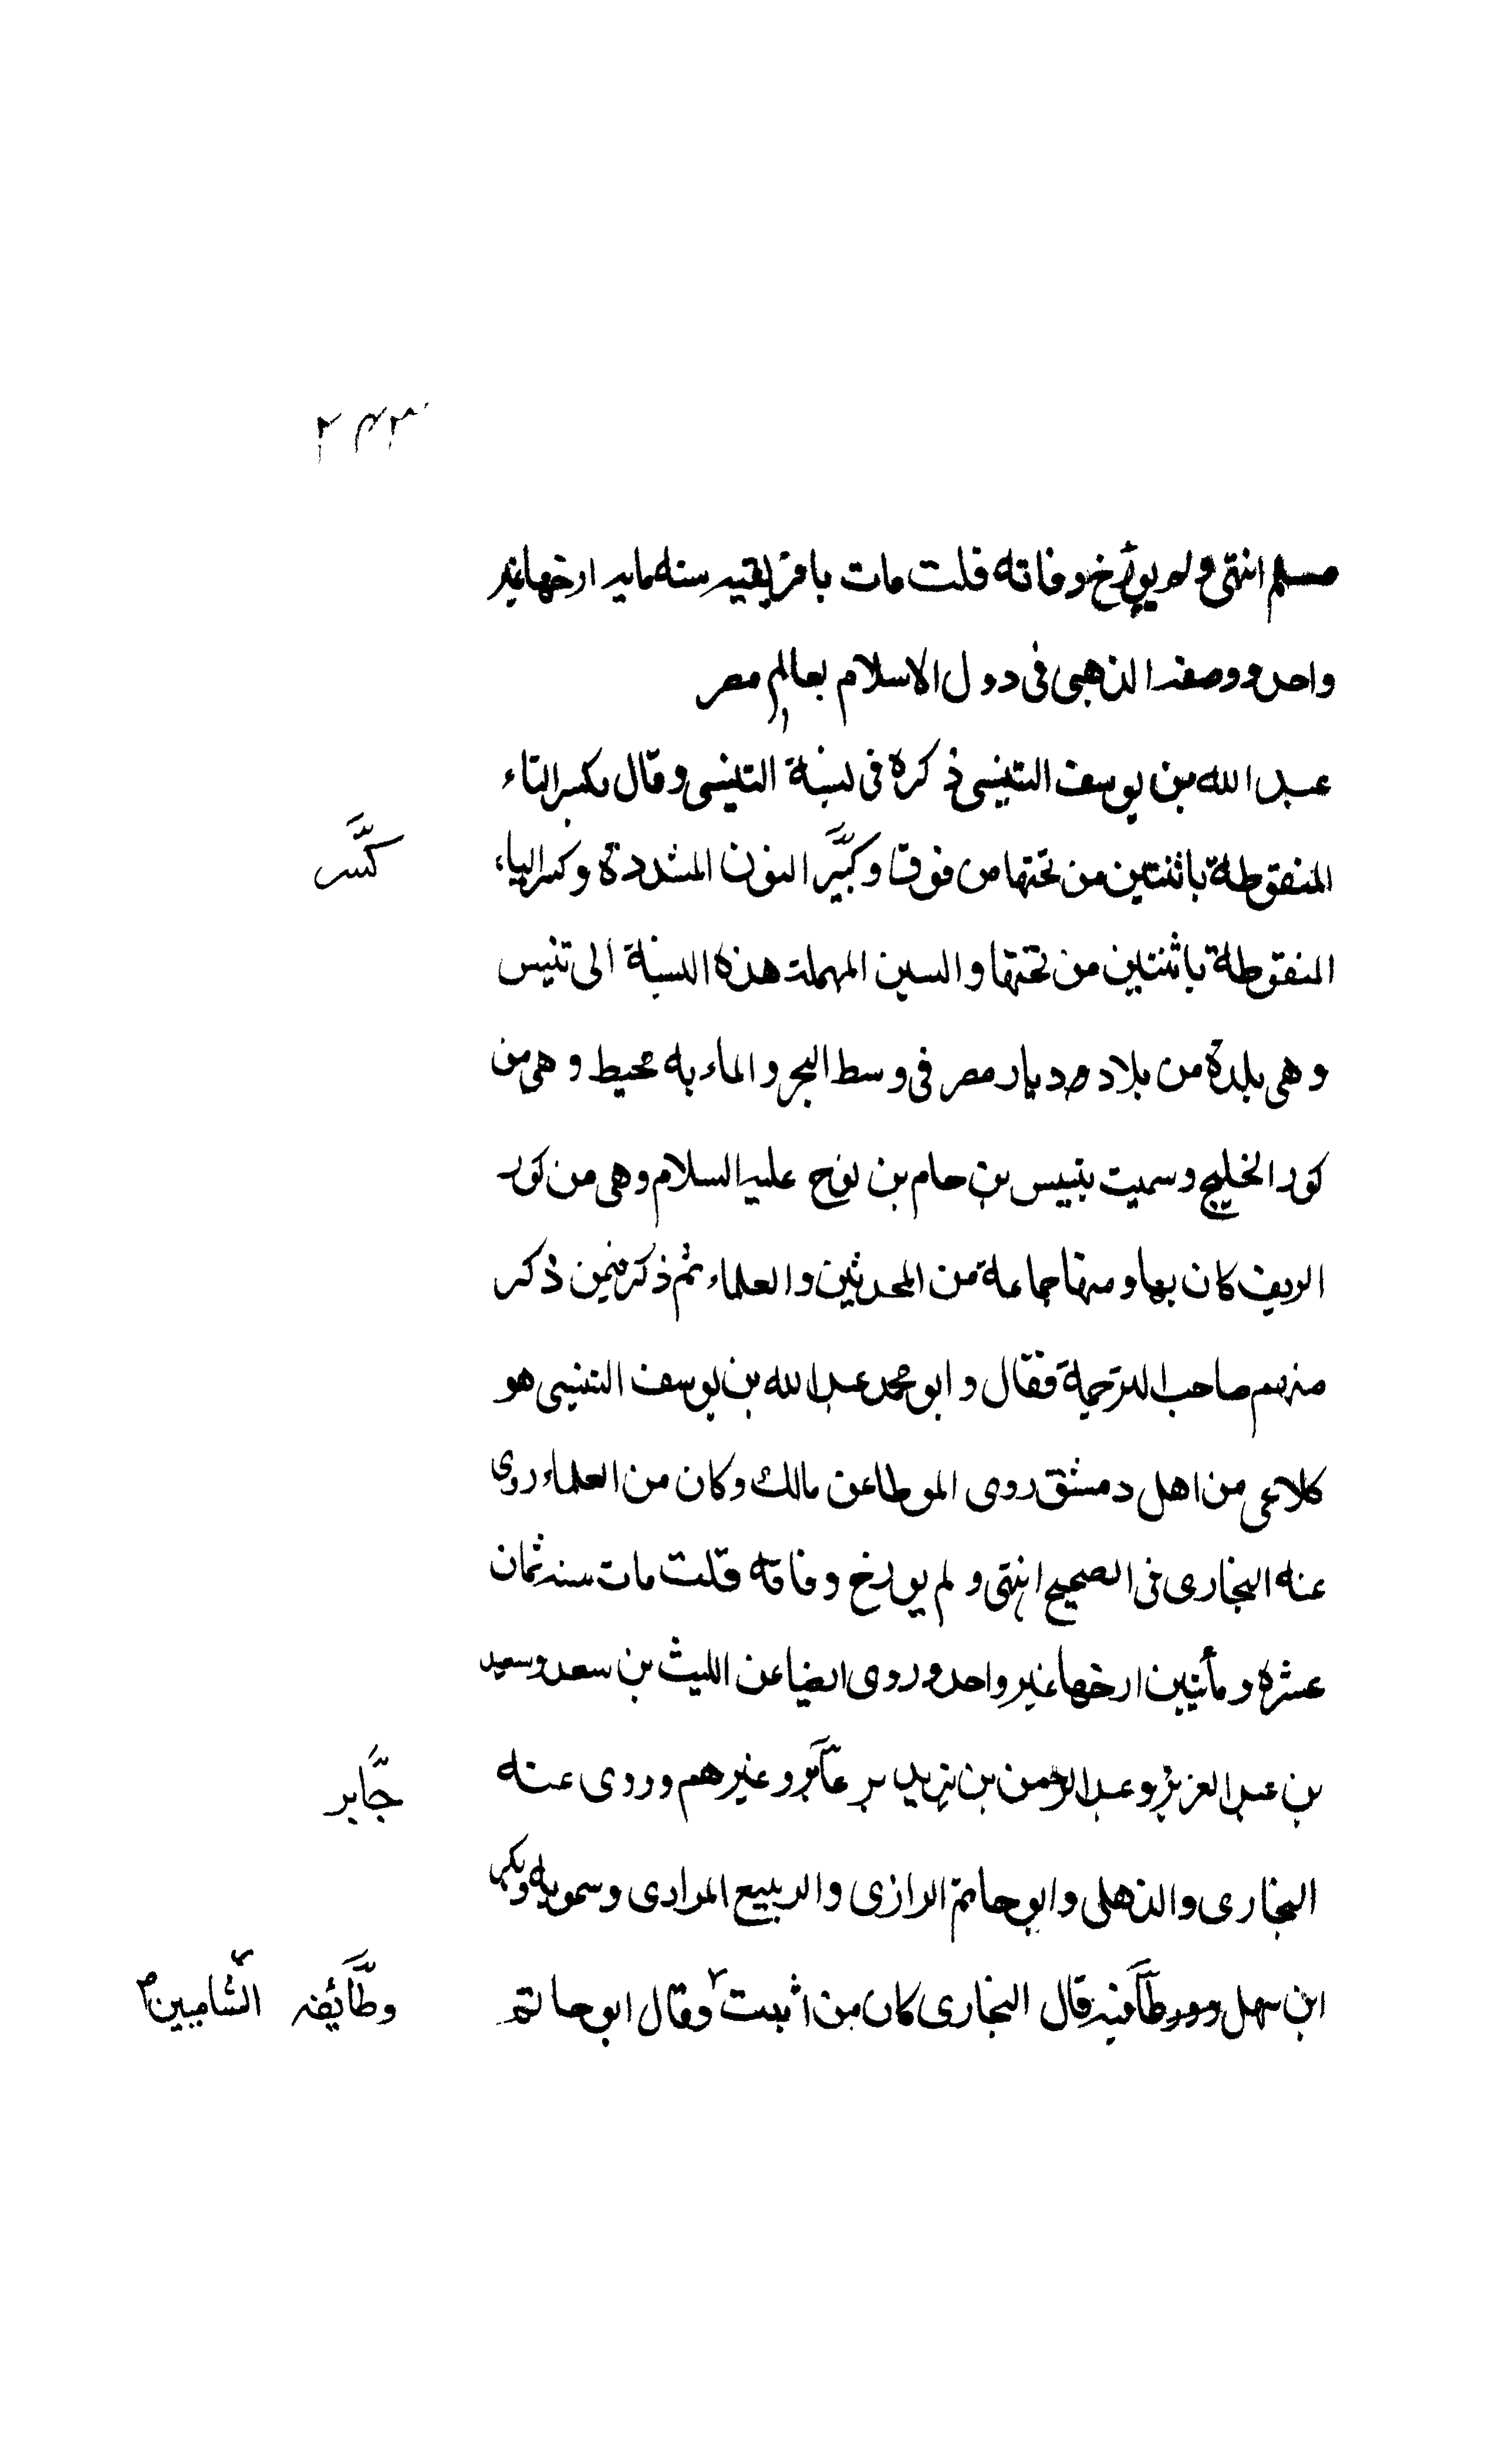 ۲۴۳
مسلم انتهى ولم يورخ وفاته قلت مات بافريقيه سنه مايه ارخها غير
واحد ووصفه الذهبى فى دول الاسلام بعالم مصر
عبد الله بن يوسف التنيسى ذكره فى نسبة التنيسى وقال بكسر التاء
المنقوطة باثنتين من تحتها من فوقا وكسر النون المشددة وكسر الياء كسر
المنقوطة باثنتين من تحتها والسين المهملة هذه النسبة الى تنيس
وهى بلدة من بلاد ديار مصر فى وسط البحر والماء به محيط وهى من
كور الخليج وسميت بتنيس بن حام بن نوح عليه السلام وهى من كور
الريف كان بها ومنها جماعة من المحدثين والعلماء ثم ذكر فيمن ذكر
منهم صاحب الترجمة فقال وابو محمد عبد الله بن يوسف التنيسى هو
كلاعى من اهل دمشق روى الموطا عن مالك وكان من العلماء روى
عنه البخارى فى الصحيح انتهى ولم يورخ وفاته قلت مات سنه ثمان
عشره ومأتين ارخها غير واحد وروى ايضا عن الليث بن سعد وسعيد
بن عبد العزيز وعبد الرحمن بن يزيد بر جابر وغيرهم وروى عنه جابر
البخارى والذهلى وابو حاتم الرازى والربيع المرادى وسمويه وبكر
ابن سهل وطائفه قال البخارى كان من اثبت وقال ابو حاتم وطائفه الشاميين